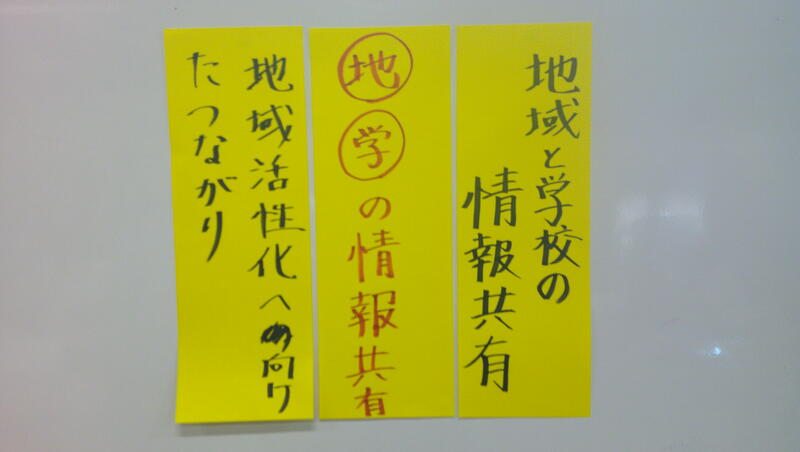 地域と学校の
情報共有
地学の情報共有
地域活性化へ向け
たつながり